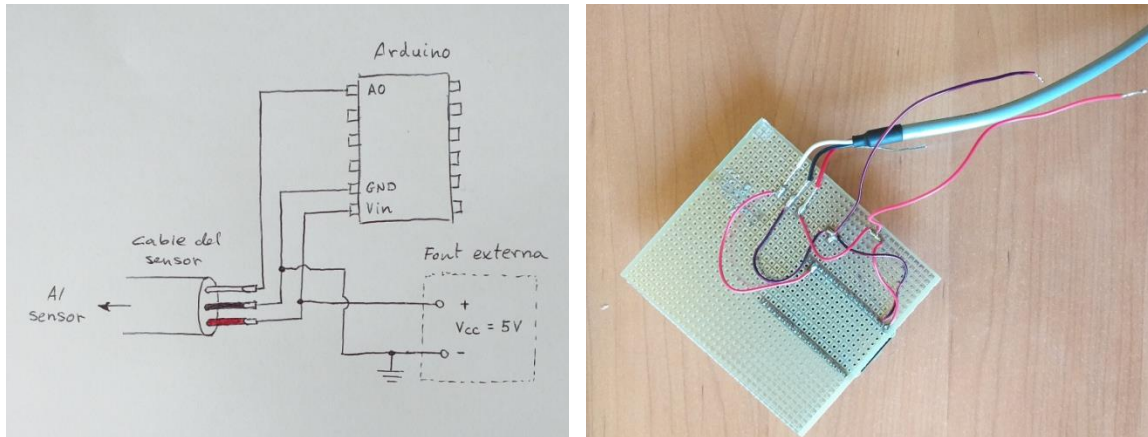 Arduino
A0
GND
Vin
Cable del
sensor
Al
sensor
Font externa
+
Vcc = 5V
-